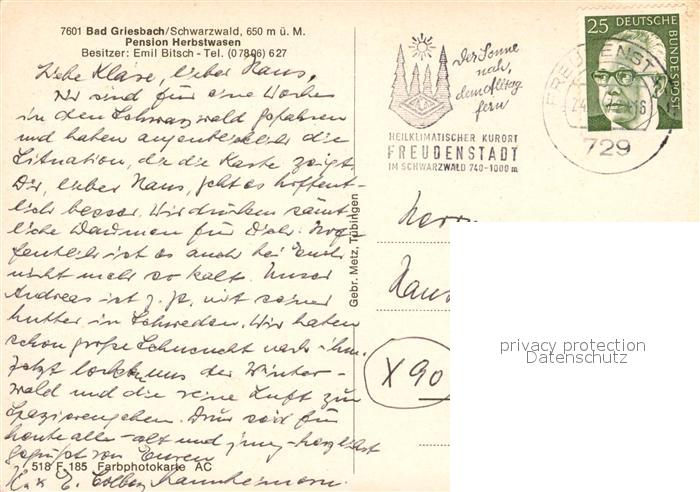 7601 Bad Griesbach/Schwarzwald, 650 m ü. M.
Pension Herbstwasen
Besitzer: Emil Bitsch - Tel. (07806) 627
Liebe Kläre, lieber Hans,
Wir sind für eine Woche
in den Schwarzwald gefahren
und haben augenblicklich die
Situation, die die Karte zeigt.
Dir, lieber Hans, geht es hoffent-
lich besser. Wir drücken sämt-
liche Daumen für Dich. Hof-
fentlich ist es auch bei Euch
nicht mehr so kalt. Unser
Andreas ist z. Zt. mit seiner
Mutter in Schweden. Wir haben
schon große Sehnsucht nach ihm.
Jetzt locken uns der Winter-
wald und die reine Luft zum
Spazierengehen. Drum seid für
heute alle - alt und jung - herzlichst
gegrüßt von Euren
518 F 185 Farbphotokarte AC
Gebr. Metz, Tübingen
Der Sonne
nah,
dem Alltag
fern
HEILKLIMATISCHER KURORT
FREUDENSTADT
IM SCHWARZWALD 740-1000 m
FREUDENST
729
25 DEUTSCHE
BUNDESPOST
Herrn
Hans
X 90
privacy protection
Datenschutz